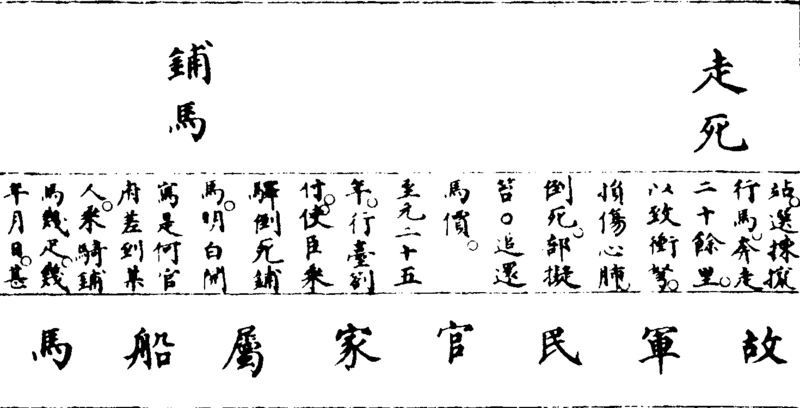 走死
鋪馬
站。選揀
行馬。奔走
二十餘里。
以致衝驚。
損傷心肺
倒死。部擬
笞。追還
馬價。
至元二十五
年。行臺劄
付。使臣乘
驛倒死鋪
馬。明白開
寫是何官
府差到某
人。乘騎鋪
馬幾疋。幾
年月日。甚
故軍民官家屬船馬